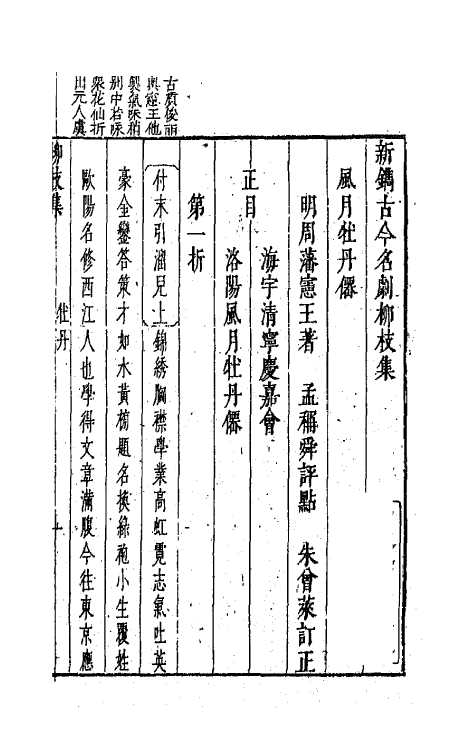 新鐫古今名劇柳枝集
風月牡丹僊
明周藩憲王著　孟稱舜評點　朱曾萊訂正
正目
海宇清寧慶嘉會
洛陽風月牡丹僊
第一折
付末引溜兒上錦綉胸襟學業高虹霓志氣吐英
豪金鑾答策才如水黃榜題名換綠袍小生覆姓
歐陽名修西江人也學得文章滿腹今往東京應
柳枝集
牡丹
一
古質俊麗
與憲王他
製氣味稍
別中若咏
衆花仙折
出元人處